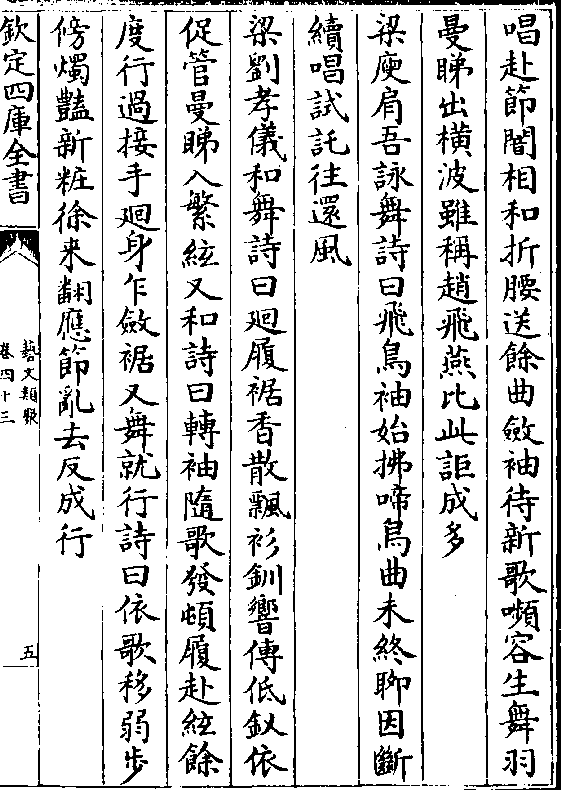 唱赴節闇相和折腰送餘曲斂袖待新歌嚬容生舞羽
曼睇出橫波雖稱趙飛燕比此詎成多
梁庾肩吾詠舞詩曰飛鳧袖始拂啼烏曲未終聊因斷
續唱試託往還風
梁劉孝儀和舞詩曰廻履裾香散飄衫釧響傳低釵依
促管曼睇入繁絃又和詩曰轉袖隨歌發頓履赴絃餘
度行過接手廻身乍斂裾又舞就行詩曰依歌移弱步
傍燭豔新粧徐来翻應節亂去反成行
欽定四庫全書
藝文類聚
卷四十三
五